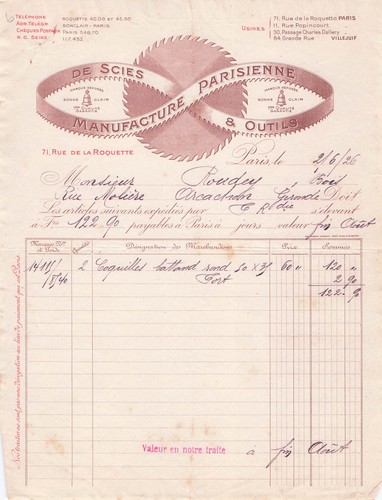 TÉLÉPHONE ROQUETTE 40.00 ET 45.50
ADR. TÉLÉGR. BONCLAIR-PARIS
CHÈQUES POSTAUX PARIS 548.70
R.C. SEINE 117.453
USINES
71, Rue de la Roquette PARIS
11, Rue Popincourt
30, Passage Charles Dallery
84, Grande Rue VILLEJUIF
MANUFACTURE PARISIENNE
DE SCIES & OUTILS
MARQUE DÉPOSÉE
BONNE CLAIR
MARQUE DÉPOSÉE
BONNE CLAIR
71, RUE DE LA ROQUETTE
Paris, le 2/6/26
Monsieur Roudey, Bois
Rue Molière Arcachon Gironde Doit
Les articles suivants expédiés par s'élevant
à Frs 122 90 payables à Paris à jours valeur fin Août
Quantités Désignation des Marchandises Prix Sommes
2 Coquilles battand rond 50 x 35 60 " 120 "
Port 2 90
122 90
Valeur en notre traite à fin Août